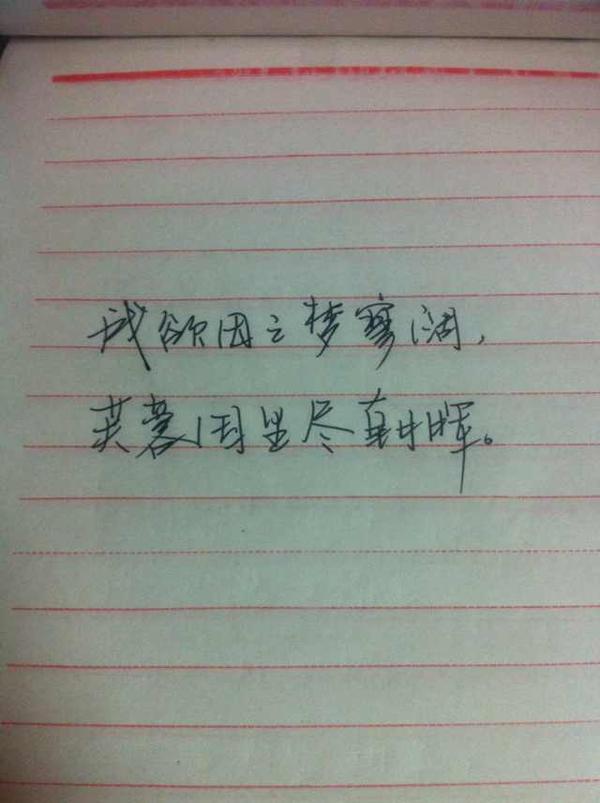 我欲因之梦寥阔，
芙蓉国里尽朝晖。